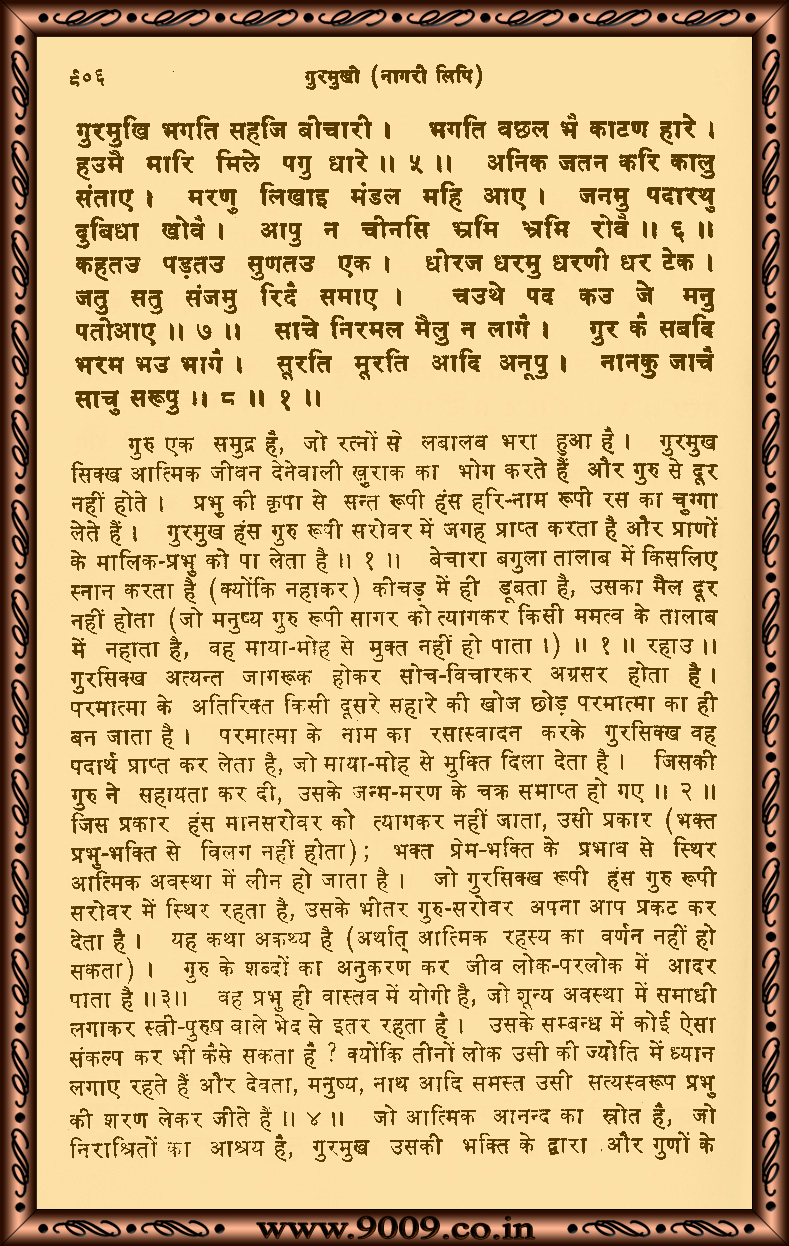 ९०६ गुरमुखी (नागरी लिपि)
गुरमुखि भगति सहजि बीचारी । भगति वछल भै काटण हारे ।
हउमै मारि मिले पगु धारे ॥ ५ ॥ अनिक जतन करि कालु
संताए । मरणु लिखाइ मंडल महि आए । जनमु पदारथु
दुबिधा खोवै । आपु न चीनसि भ्रमि भ्रमि रोवै ॥ ६ ॥
कहतउ पड़तउ सुणतउ एक । धीरज धरमु धरणी धर टेक ।
जतु सतु संजमु रिदै समाए । चउथे पद कउ जे मनु
पतीआए ॥ ७ ॥ साचे निरमल मैलु न लागै । गुर कै सबदि
भरम भउ भागै । सूरति मूरति आदि अनूपु । नानकु जाचै
साचु सरूपु ॥ ८ ॥ १ ॥
गुरु एक समुद्र है, जो रत्नों से लबालब भरा हुआ है । गुरमुख
सिक्ख आत्मिक जीवन देनेवाली खुराक का भोग करते हैं और गुरु से दूर
नहीं होते । प्रभु की कृपा से सन्त रूपी हंस हरि-नाम रूपी रस का चुग्गा
लेते हैं । गुरमुख हंस गुरु रूपी सरोवर में जगह प्राप्त करता है और प्राणों
के मालिक-प्रभु को पा लेता है ॥ १ ॥ बेचारा बगुला तालाब में किसलिए
स्नान करता है (क्योंकि नहाकर) कीचड़ में ही डूबता है, उसका मैल दूर
नहीं होता (जो मनुष्य गुरु रूपी सागर को त्यागकर किसी ममत्व के तालाब
में नहाता है, वह माया-मोह से मुक्त नहीं हो पाता ।) ॥ १ ॥ रहाउ ॥
गुरसिक्ख अत्यन्त जागरूक होकर सोच-विचारकर अग्रसर होता है ।
परमात्मा के अतिरिक्त किसी दूसरे सहारे की खोज छोड़ परमात्मा का ही
बन जाता है । परमात्मा के नाम का रसास्वादन करके गुरसिक्ख वह
पदार्थ प्राप्त कर लेता है, जो माया-मोह से मुक्ति दिला देता है । जिसकी
गुरु ने सहायता कर दी, उसके जन्म-मरण के चक्र समाप्त हो गए ॥ २ ॥
जिस प्रकार हंस मानसरोवर को त्यागकर नहीं जाता, उसी प्रकार (भक्त
प्रभु-भक्ति से विलग नहीं होता); भक्त प्रेम-भक्ति के प्रभाव से स्थिर
आत्मिक अवस्था में लीन हो जाता है । जो गुरसिक्ख रूपी हंस गुरु रूपी
सरोवर में स्थिर रहता है, उसके भीतर गुरु-सरोवर अपना आप प्रकट कर
देता है । यह कथा अकथ्य है (अर्थात् आत्मिक रहस्य का वर्णन नहीं हो
सकता) । गुरु के शब्दों का अनुकरण कर जीव लोक-परलोक में आदर
पाता है ॥३॥ वह प्रभु ही वास्तव में योगी है, जो शून्य अवस्था में समाधी
लगाकर स्त्री-पुरुष वाले भेद से इतर रहता है । उसके सम्बन्ध में कोई ऐसा
संकल्प कर भी कैसे सकता है ? क्योंकि तीनों लोक उसी की ज्योति में ध्यान
लगाए रहते हैं और देवता, मनुष्य, नाथ आदि समस्त उसी सत्यस्वरूप प्रभु
की शरण लेकर जीते हैं ॥ ४ ॥ जो आत्मिक आनन्द का स्रोत है, जो
निराश्रितों का आश्रय है, गुरमुख उसकी भक्ति के द्वारा और गुणों के
www.9009.co.in